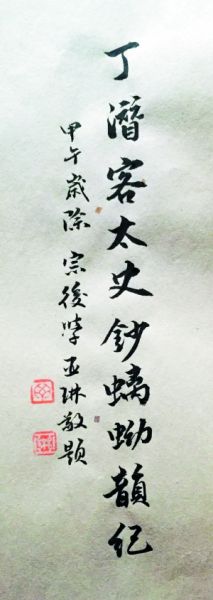 丁潛客太史鈔螭蚴韻紀
甲午歲除 宗後學亚琳敬題